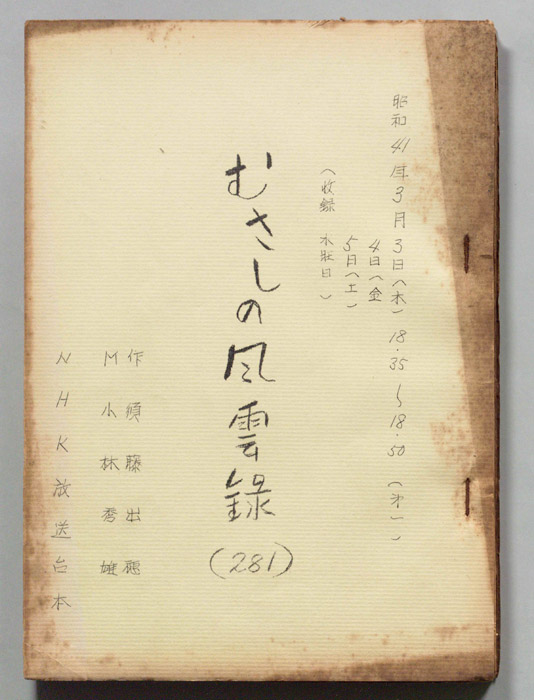 昭和41年3月3日(木) 18.35~18.50(オ一)
4日(金
5日(土)
(收録 水曜日)
むさしの風雲錄
(281)
作 須藤出穂
M 小林秀雄
NHK放送台本